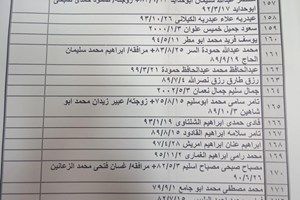 ١٥٧
ابوحديد ٩٢/٣/١٧
١٥٨ عبدربه علاء عبدربه الكيلاني ٩٣/١٠/٢٦
١٥٩ سعود جميل خميس علوان ٢٠٠٠/١/٣
١٦٠ يوسف فريد محمد ابو مطر ٩٤/٥/١١
١٦١ محمد عبدالله حمودة السر ٨٣/٨/٢٥+ مرافقه/ ابراهيم محمد سليمان
الحاج ٨٩/٩/١٩
١٦٢ عبدالحافظ محمد عبدالحافظ حمودة ٩٩/٢/١
١٦٣ رزق طارق رزق نصرالله ٨٩/٧/٤
١٦٤ جمال سليم جمال نعمان ٢٠٠٢/٥/٣
١٦٥ تامر سامي محمد ابوسليم ٧٥/٨/١٥+ زوجته/ عبير زيدان محمد ابو
شاهين ٨٩/١٠/٣
١٦٦ فادي حمدي ابراهيم الشلتاوي ٩٣/١/٩
١٦٧ تامر سلامه ابراهيم القادود ٨٩/٨/١٥
١٦٨ ابراهيم عنان ابراهيم امريش ٩٧/٤/٨
١٦٩ محمد رامي ابراهيم الغماري ٩٥/١/١
١٧٠ مصباح صبحي مصباح اسليم ٨٢/٥/٣+ مرافقه/ غسان فتحي محمد الزعانين
٩٠/٦/٢٦
١٧١ محمد مصطفى محمد ابو جامع ٧٩/٩/١